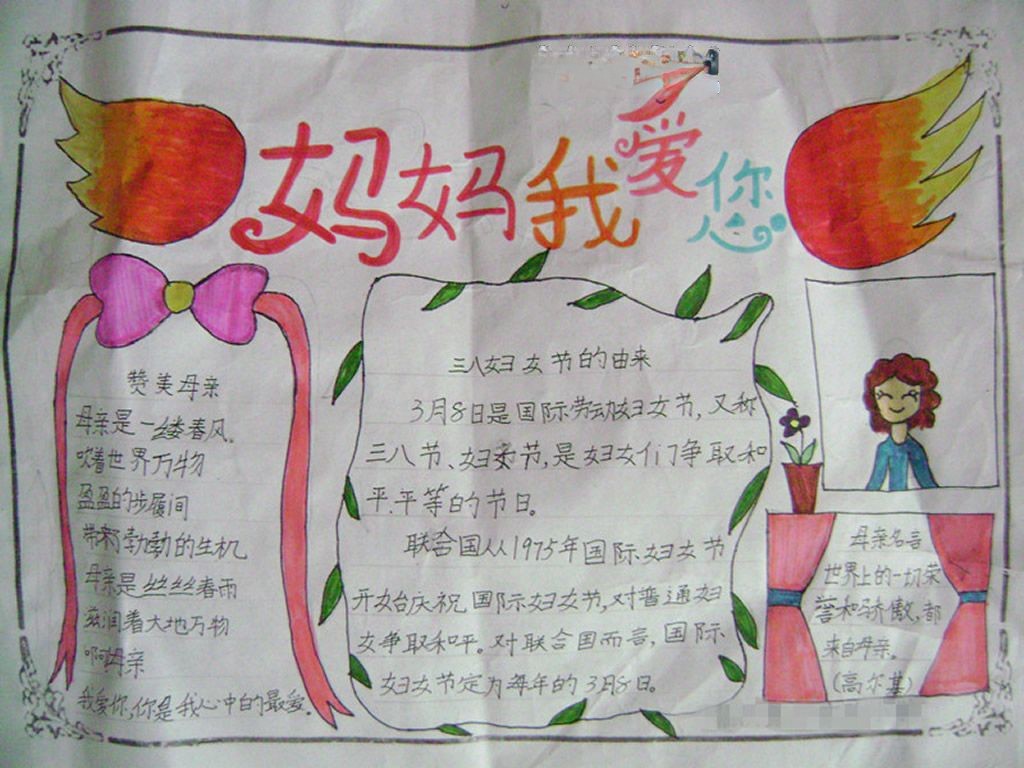 妈妈我爱您
赞美母亲
母亲是一缕春风。
吹着世界万物
盈盈的步履间
带来了勃勃的生机
母亲是丝丝春雨
滋润着大地万物
啊母亲
我爱你,你是我心中的最爱。
三八妇女节的由来
3月8日是国际劳动妇女节,又称
三八节、妇女节,是妇女们争取和
平.平等的节日。
联合国从1975年国际妇女节
开始庆祝国际妇女节,对普通妇
女争取和平。对联合国而言,国际
妇女节定为每年的3月8日。
母亲名言
世界上的一切荣
誉和骄傲,都
来自母亲。
(高尔基)